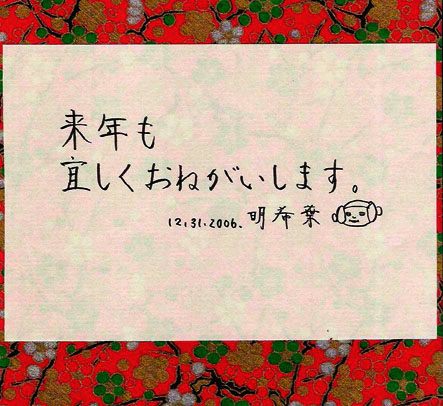 来年も
宜しくおねがいします。
12.31.2006. 明希葉